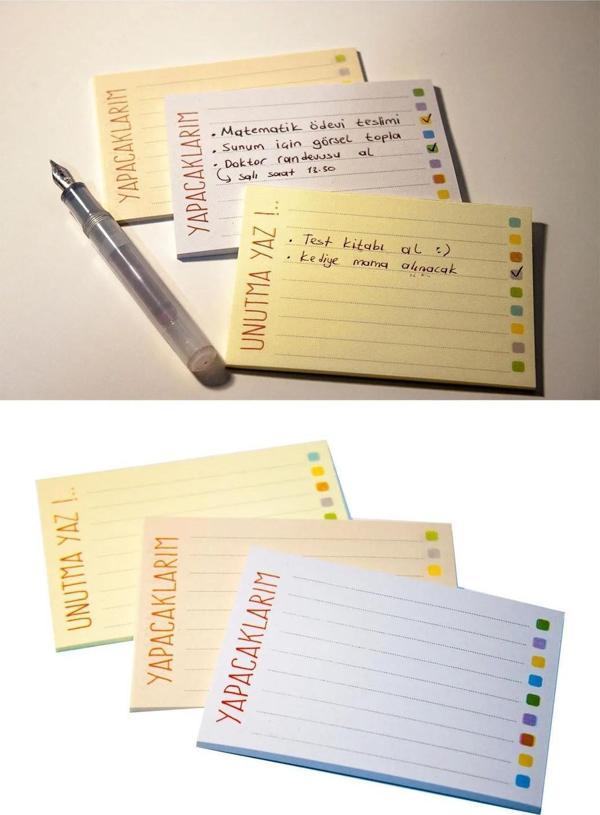 YAPACAKLARIM
YAPACAKLARIM
• Matematik ödevi teslimi
• Sunum için görsel topla
• Doktor randevusu al
↳ Salı saat 13.30
UNUTMA YAZ !..
• Test kitabı al :)
• Kediye mama alınacak
UNUTMA YAZ !..
YAPACAKLARIM
YAPACAKLARIM